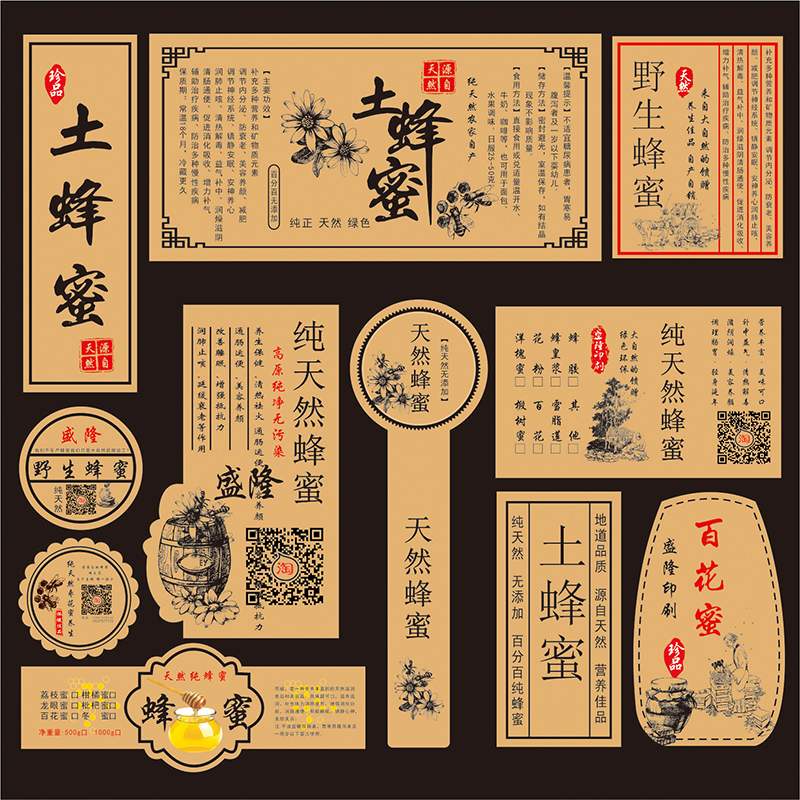 珍品
土蜂蜜
源自天然
【主要功效】
补充多种营养和矿物质元素
调节内分泌、防衰老、美容养颜、减肥
调节神经系统、镇静安眠、安神养心
润肺止咳、清热解毒、益气补中、润燥滋阴
清肠通便、促进消化吸收、增力补气、
辅助治疗疾病、防治多种慢性疾病
保质期：常温18个月，冷藏更久
百分百无添加
土蜂蜜
源自天然
纯正 天然 绿色
纯天然农家自产
【温馨提示】不适宜糖尿病患者，胃寒易
腹泻者及一岁以下婴幼儿。
【储存方法】密封避光，室温保存，如有结晶
现象不影响质量
【食用方法】直接食用或兑适量温开水
牛奶、咖啡等，也可用于面包、
水果调味。日服25-50克
补充多种营养和矿物质元素 调节内分泌、防衰老、美容养
颜、减肥调节神经系统、镇静安眠、安神养心润肺止咳、
清热解毒、益气补中、润燥滋阴清肠通便、促进消化吸收、
增力补气、辅助治疗疾病、防治多种慢性疾病
来自大自然的馈赠
养生佳品 自产自销
天然
野生蜂蜜
纯天然蜂蜜
高原纯净无污染
养生保健、清热祛火、通肠润便、美容养颜
通肠润便、美容养颜
改善睡眠、增强抵抗力
润肺止咳、延缓衰老等作用
盛隆
淘
【纯天然无添加】
天然蜂蜜
天然蜂蜜
营养丰富、美味可口
补中益气、清热解毒
滋阴润燥、美容养颜
调理肠胃、轻身延年
纯天然蜂蜜
大自然的馈赠
绿色环保
盛隆印刷
蜂胶□ 其他□
蜂皇浆□ 雪脂莲□
花粉□ 百花□
洋槐蜜□ 椴树蜜□
淘
盛隆
野生蜂蜜
纯天然
淘
纯天然枣花蜜养生
地道品质 源自天然 营养佳品
土蜂蜜
纯天然 无添加 百分百纯蜂蜜
百花蜜
盛隆印刷
珍品
天然纯蜂蜜
蜂蜜
荔枝蜜口柑橘蜜口
龙眼蜜口枇杷蜜口
百花蜜口冬 蜜口
净重量:500g口 1000g口